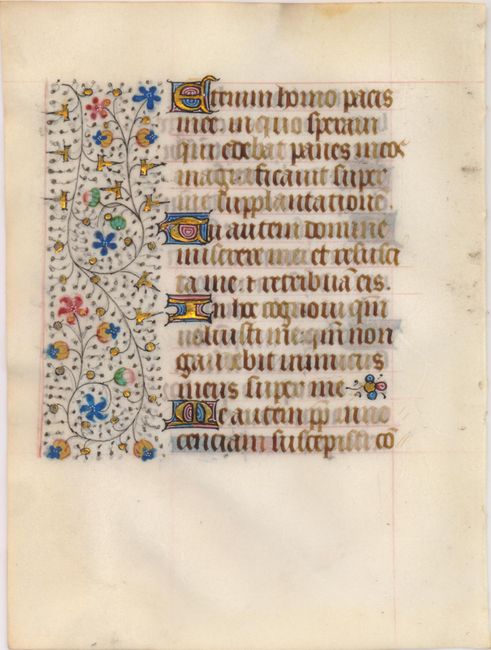 Etenim homo pacis
mee in quo speraui
qui edebat panes meos
magnificauit super
me supplantatione.
Tu autem domine
miserere mei et resusci
ta me: et retribuā eis.
In hoc cognoui qm̄
uoluisti me: qm̄ non
gaudebit inimicus
meus super me
Me autem pp̄ inno
cenciam suscepisti et cō